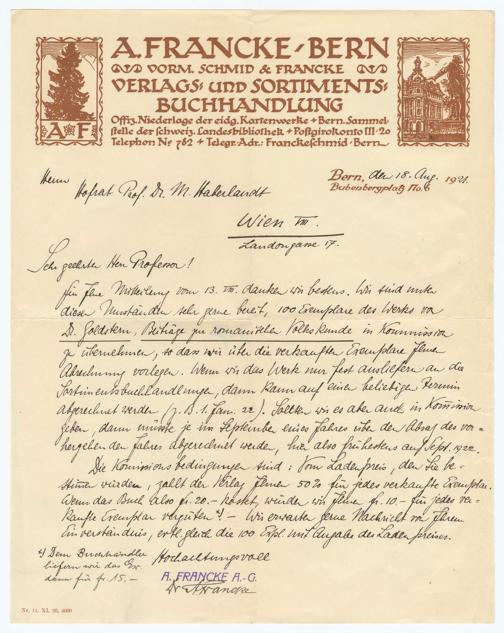 A. FRANCKE-BERN
VORM. SCHMID & FRANCKE
VERLAGS- UND SORTIMENTS-
BUCHHANDLUNG
Offiz. Niederlage der eidg. Kartenwerke + Bern. Sammel-
stelle der schweiz. Landesbibliothek + Postgirokonto III·20
Telephon No 782 + Telegr.-Adr.: Franckeschmid-Bern
A F
Bern, den 18. Aug. 1921.
Bubenbergplatz No. 6
Herrn
Hofrat Prof. Dr. M. Haberlandt
Wien VIII.
Laudongasse 17.
Sehr geehrter Herr Professor!
Für Ihre Mitteilung vom 13. VIII. danken wir bestens. Wir sind unter
diesen Umständen sehr gerne bereit, 100 Exemplare des Werks von
Dr. Goldstern, Beiträge zu romanischen Volkskunde in Kommission
zu übernehmen, so dass wir über die verkauften Exemplare Ihnen
Abrechnung vorlegen. Wenn wir das Werk nur fest ausliefern an die
Sortimentsbuchhandlungen, dann kann auf einen beliebigen Termin
abgerechnet werden (z. B. 1. Jan. 22). Sollten wir es aber auch in Kommission
geben, dann müsste je im September eines Jahres über den Absatz des vor-
hergehenden Jahres abgerechnet werden, hier also frühestens auf Sept. 1922.
Die Komissionsbedingungen sind: Vom Ladenpreis, den Sie be-
stimmen würden, zahlt der Verlag Ihnen 50% für jedes verkaufte Exemplar.
Wenn das Buch also fr. 20.- kostet, würden wir Ihnen fr. 10.- für jedes ver-
kaufte Exemplar vergüten *). - Wir erwarten gerne Nachricht von Ihrem
Einverständnis, evtl. gleich die 100 Expl. mit Angabe des Ladenpreises.
*) Dem Buchhändler
liefern wir das Ex.
dann für fr. 15.-
Hochachtungsvoll
A. FRANCKE A.-G.
Dr A Francke
Nr. 14. XI. 20. 4000